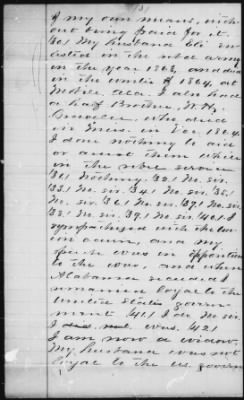 131
of my own means, with
out being paid for it.
30] My husband Eli en
listed in the rebel army
in the year 1862, and died
in the winter of 1864, at
Mobile, Ala. I also had
a half Brother, W. H.
who died
in Miss. in Dec. 1864.
I done nothing to aid
or assist them while
in the rebel service
31] Nothing. 32] No sir.
33] No sir. 34] No sir. 35]
No. sir. 36] No sir. 37] No sir.
38] No sir. 39] No sir. 40] I
sympathized with the Un
ion cause, and my
was in opposition
to the war, and when
Alabama seceded I
remained loyal to the
United States govern
ment 41] I do No sir.
I was. 42]
I am now a widow.
My husband was not
loyal to the U.S. govern